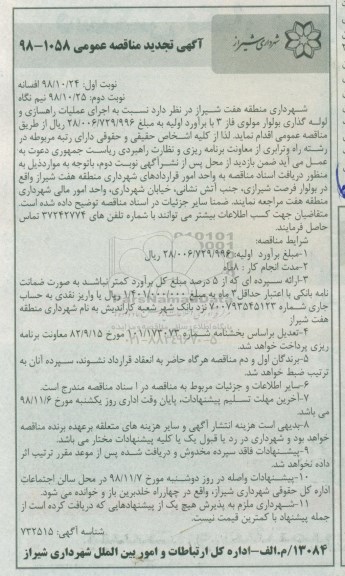 شهرداری شیراز
آگهی تجدید مناقصه عمومی ۱۰۵۸-۹۸
نوبت اول: ۹۸/۱۰/۲۴ افسانه
نوبت دوم: ۹۸/۱۰/۲۵ نیم نگاه
شهرداری منطقه هفت شیراز در نظر دارد نسبت به اجرای عملیات راهسازی و
لوله گذاری بولوار مولوی فاز ۳ با برآورد اولیه به مبلغ ۲۸/۰۰۶/۷۲۹/۹۹۶ ریال از طریق
مناقصه عمومی اقدام نماید. لذا از کلیه اشخاص حقیقی و حقوقی دارای رتبه مربوطه در
رشته راه وترابری از معاونت برنامه ریزی و نظارت راهبردی ریاست جمهوری دعوت به
عمل می آید ضمن بازدید از محل پس از نشر آگهی نوبت دوم، باتوجه به موارد ذیل به
منظور دریافت اسناد مناقصه به واحد امور قراردادهای شهرداری منطقه هفت شیراز واقع
در بولوار فرصت شیرازی، جنب آتش نشانی، خیابان شهرداری، واحد امور مالی شهرداری
منطقه هفت مراجعه نمایند. ضمنا سایر جزئیات در اسناد مناقصه توضیح داده شده است.
متقاضیان جهت کسب اطلاعات بیشتر می توانند با شماره تلفن های ۳۷۲۴۲۷۷۴ تماس
حاصل فرمایند.
شرایط مناقصه:
۱-مبلغ برآورد اولیه: ۲۸/۰۰۶/۷۲۹/۹۹۶ ریال
۲-مدت انجام کار : ۸ماه
۳-ارائه سپرده ای که از ۵ درصد مبلغ کل برآورد کمتر نباشد به صورت ضمانت
نامه بانکی با اعتبار حداقل ۳ ماه به مبلغ ریال یا واریز نقدی به حساب
جاری شماره ۷۰۰۷۹۳۵۴۵۱۲۳ نزد بانک شهر شعبه کارآندیش به نام شهرداری منطقه
هفت شیراز
۴-تعدیل براساس بخشنامه شماره ۱۰۱/۱۷۳۰۷۳ مورخ ۸۲/۹/۱۵ معاونت برنامه
ریزی پرداخت خواهد شد.
۵-برندگان اول و دم مناقصه هرگاه حاضر به انعقاد قرارداد نشوند، سپرده آنان به
ترتیب ضبط خواهد شد.
۶-سایر اطلاعات و جزئیات مربوط به مناقصه در اسناد مناقصه مندرج است.
۷-آخرین مهلت تسلیم پیشنهادات، پایان وقت اداری روز یکشنبه مورخ ۹۸/۱۱/۶
می باشد.
۸-بدیهی است هزینه انتشار آگهی و سایر هزینه های متعلقه برعهده برنده مناقصه
خواهد بود و شهرداری در رد یا قبول یک یا کلیه پیشنهادات مختار می باشد.
۹-پیشنهادات فاقد سپرده مخدوش و دریافت شده پس از موعد مقرر ترتیب اثر
داده نخواهد شد.
۱۰-پیشنهادات واصله در روز دوشنبه مورخ ۹۸/۱۱/۷ در محل سالن اجتماعات
اداره کل حقوقی شهرداری شیراز، واقع در چهارراه خلدبرین باز و خوانده می شود.
۱۱-شهرداری ملزم به پذیرش هیچ یک از پیشنهادهایی که دریافت کرده است از
جمله پیشنهاد با کمترین قیمت نیست.
شناسه آگهی: ۷۳۲۵۱۵
۱۳۰۸۴/م.الف-اداره کل ارتباطات و امور بین الملل شهرداری شیراز